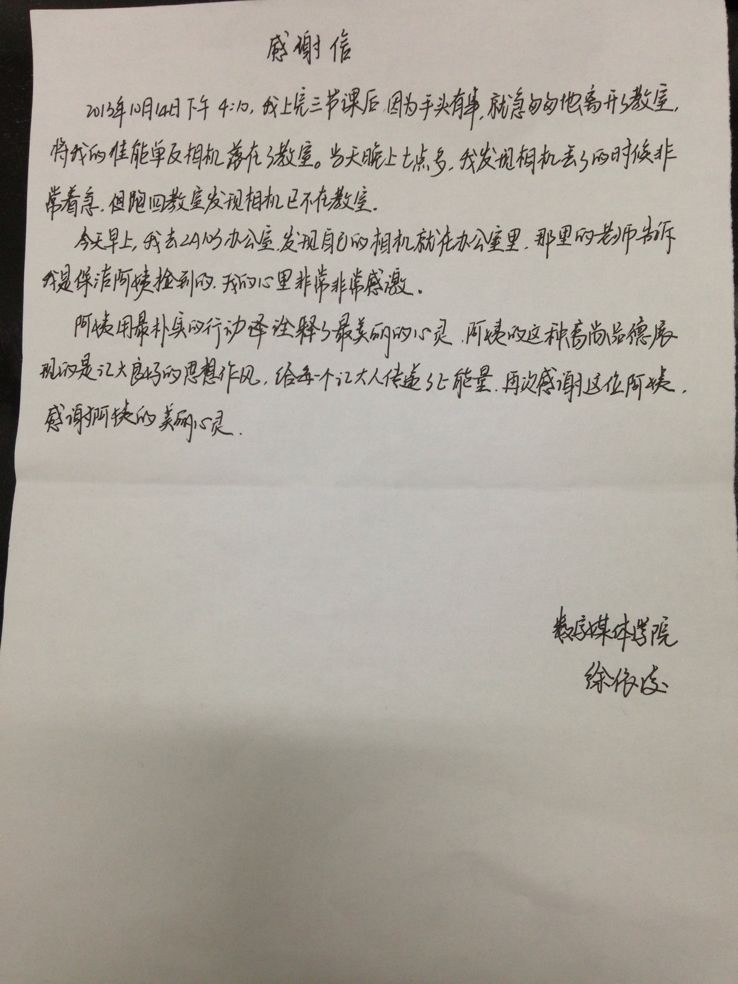 感谢信
2013年10月14日下午4:10，我上完三节课后，因为手头有事，就急匆匆地离开了教室，
将我的佳能单反相机落在了教室。当天晚上七点多，我发现相机丢了的时候非
常着急，但跑回教室发现相机已不在教室．
今天早上，我去2A103办公室，发现自己的相机就在办公室里，那里的老师告诉
我是保洁阿姨捡到的．我的心里非常非常感激。
阿姨用最朴实的行动诠释了最美丽的心灵．阿姨的这种高尚品德展
现的是江大良好的思想作风，给每一个江大人传递了正能量．再次感谢这位阿姨，
感谢阿姨的美丽心灵．
数字媒体学院
徐依